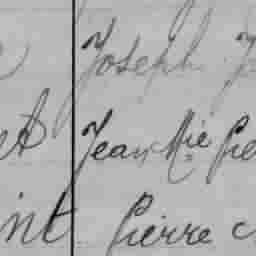 Joseph
et Jean Mie Pie
int Pierre